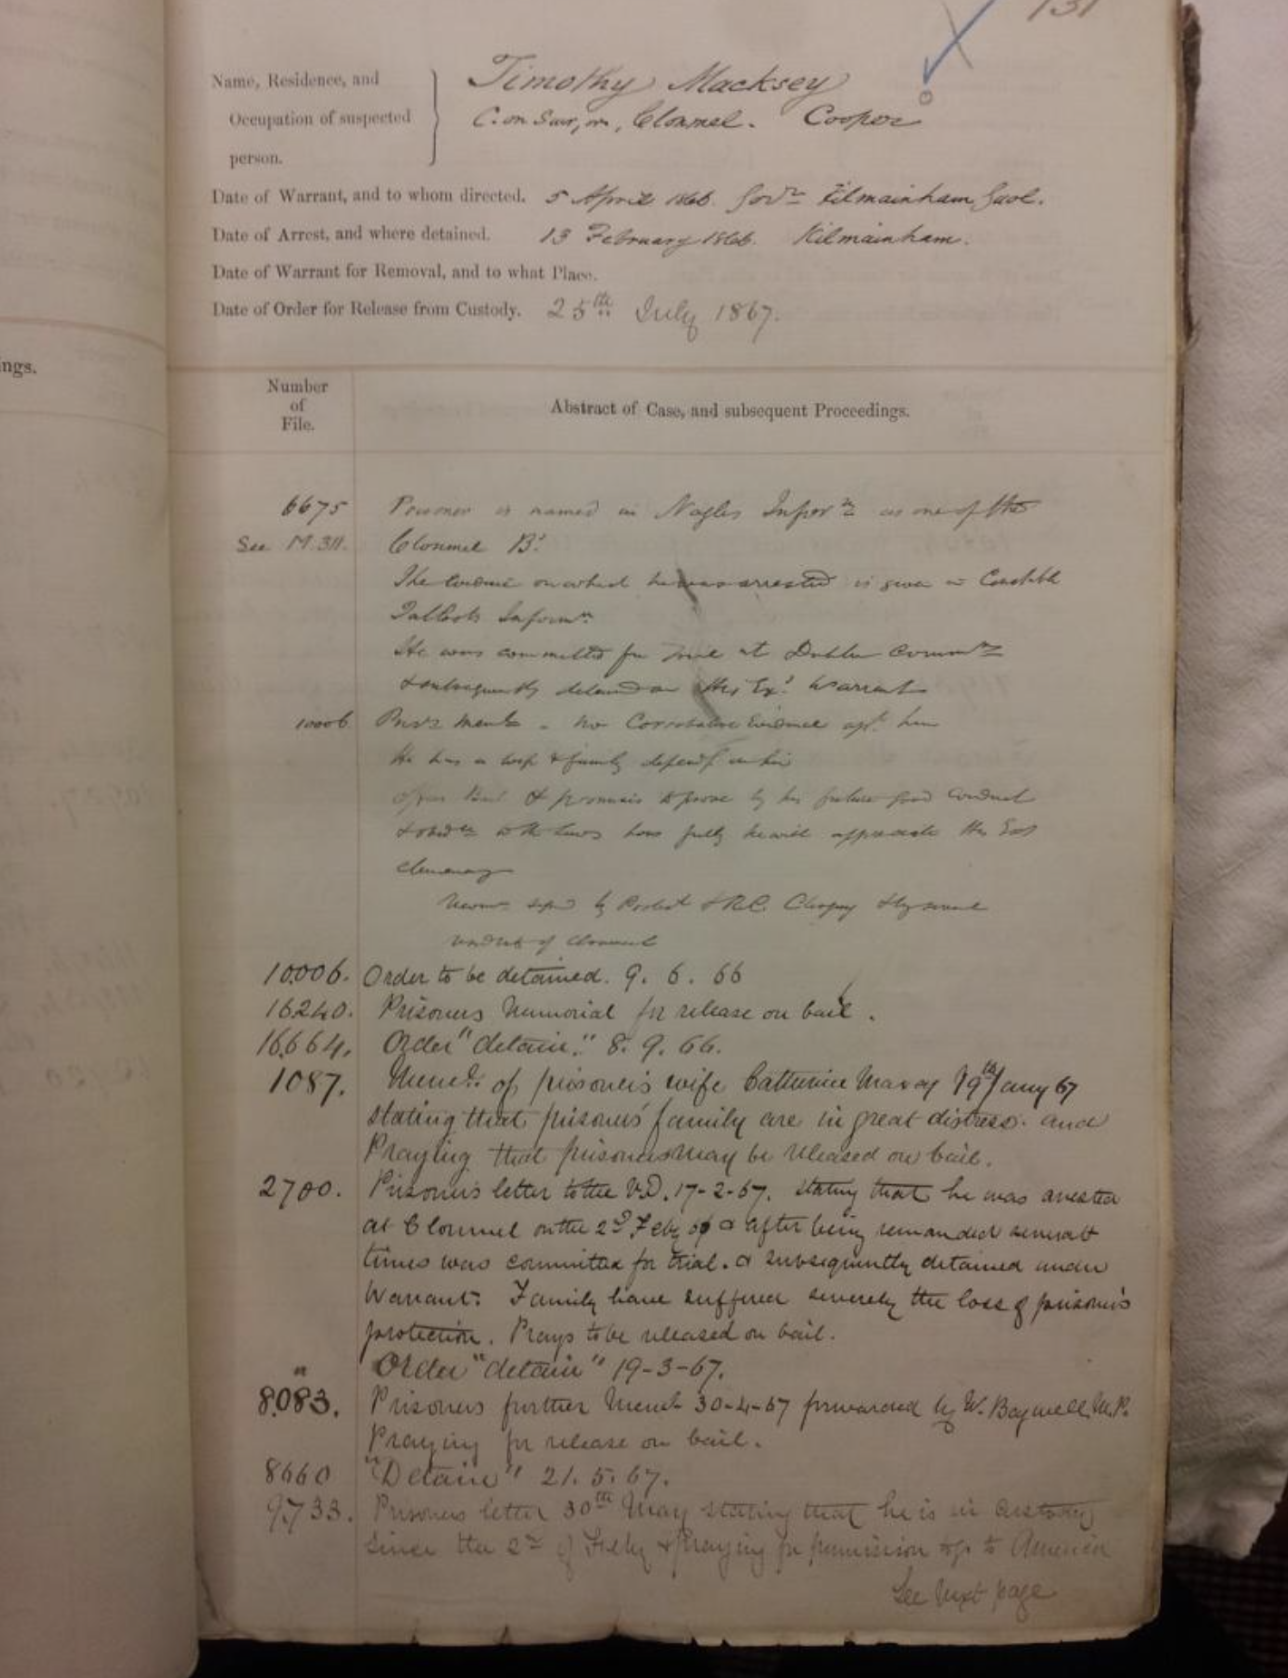 131
Timothy Macksey
Name, Residence, and
Occupation of suspected
person.
C. on Suir, Clonmel. Cooper
Date of Warrant, and to whom directed. 5 April 1866. Govr Kilmainham Gaol.
Date of Arrest, and where detained. 13 February 1866. Kilmainham.
Date of Warrant for Removal, and to what Place.
Date of Order for Release from Custody. 25th July 1867.
ings.
Number
of
File.
Abstract of Case, and subsequent Proceedings.
6675 Prisoner is named in Nagles Informn as one of the
See M.311. Clonmel B.
The evidence on which he was arrested is given in Constble
Talbots Informn
He was committed for trial at Dublin Commn
& subsequently detained on His Ex. Warrant
10006 Prisrs Meml - no Corroborative Evidence agt. him
He has a wife & family dependt on him
offers bail & promises to prove by his future good conduct
& obedce to the laws how fully he will appreciate His Exs
clemency
signed by & R.C. Clergy &
of Clonmel
10.006. Order to be detained. 9. 6. 66
16240. Prisoners Memorial for release on bail.
16664. Order "detain." 8. 9. 66.
1087. Meml. of prisoner's wife Catherine 19th Jany 67
stating that prisoners' family are in great distress. and
Praying that prisoner may be released on bail.
2700. Prisoner's letter to the 17-2-67. stating that he was arrested
at Clonmel on the 2d Feby 66 & after being remanded several
times was committed for trial. & subsequently detained under
Warrant. Family have suffered severely the loss of prisoner's
protection. Prays to be released on bail.
" Order "detain" 19-3-67.
8083. Prisoners further Meml. 30-4-67 forwarded by W. Bagwell M.P.
Praying for release on bail.
8660 "Detain" 21. 5. 67.
9733. Prisoners letter 30th May stating that he is in custody
since the 2nd of Feby & praying for permission to go to America
See Next page